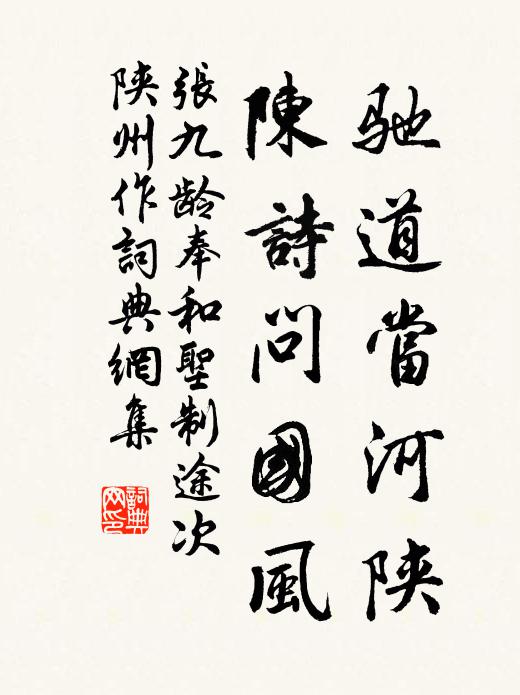 馳道當河陝
陳詩問國風
張九龄奉和聖制途次
陝州作詞典網集
詞典网印